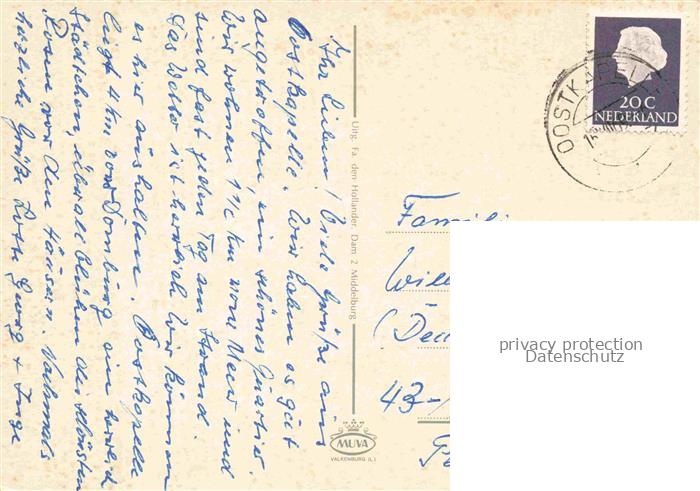 Ihr Lieben! Viele Grüße aus
Ostkapelle. Wir haben es gut
angetroffen, ein schönes Quartier.
Wir wohnen 1½ km vom Meer und
sind fast jeden Tag am Strand.
Das Wetter ist herrlich. Wir können
es hier aushalten. Ostkapelle
liegt 4 km von Domburg ein
Städtchen, überall blühen die schönsten
Rosen vor den Häusern. Nochmals
herzliche Grüße Georg + Inge
Uitg. Fa. den Hollander, Dam 2 Middelburg
MUVA
VALKENBURG (L.)
20 C
NEDERLAND
OOSTKAPELLE
Famili
Will
43-
privacy protection
Datenschutz